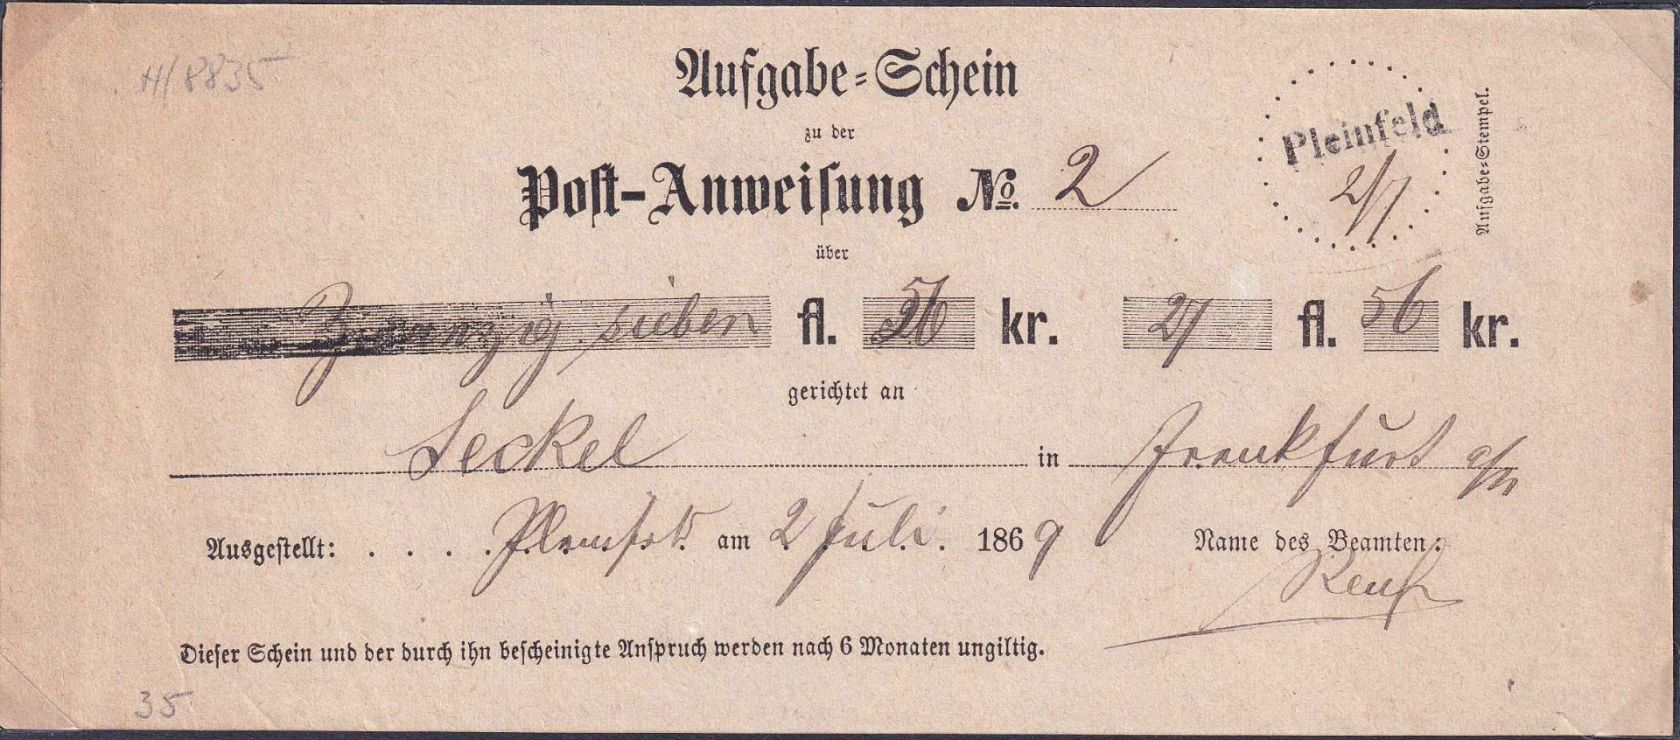 H/8835
Aufgabe-Schein
zu der
Post-Anweisung No. 2
Pleinfeld
2/7
Aufgabe-Stempel.
über
Zwanzig sieben fl. 56 kr. 27 fl. 56 kr.
gerichtet an
Seckel in Frankfurt a/M
Ausgestellt: . . . . Pleinfeld am 2 Juli. 1869 Name des Beamten:
Dieser Schein und der durch ihn bescheinigte Anspruch werden nach 6 Monaten ungiltig.
35